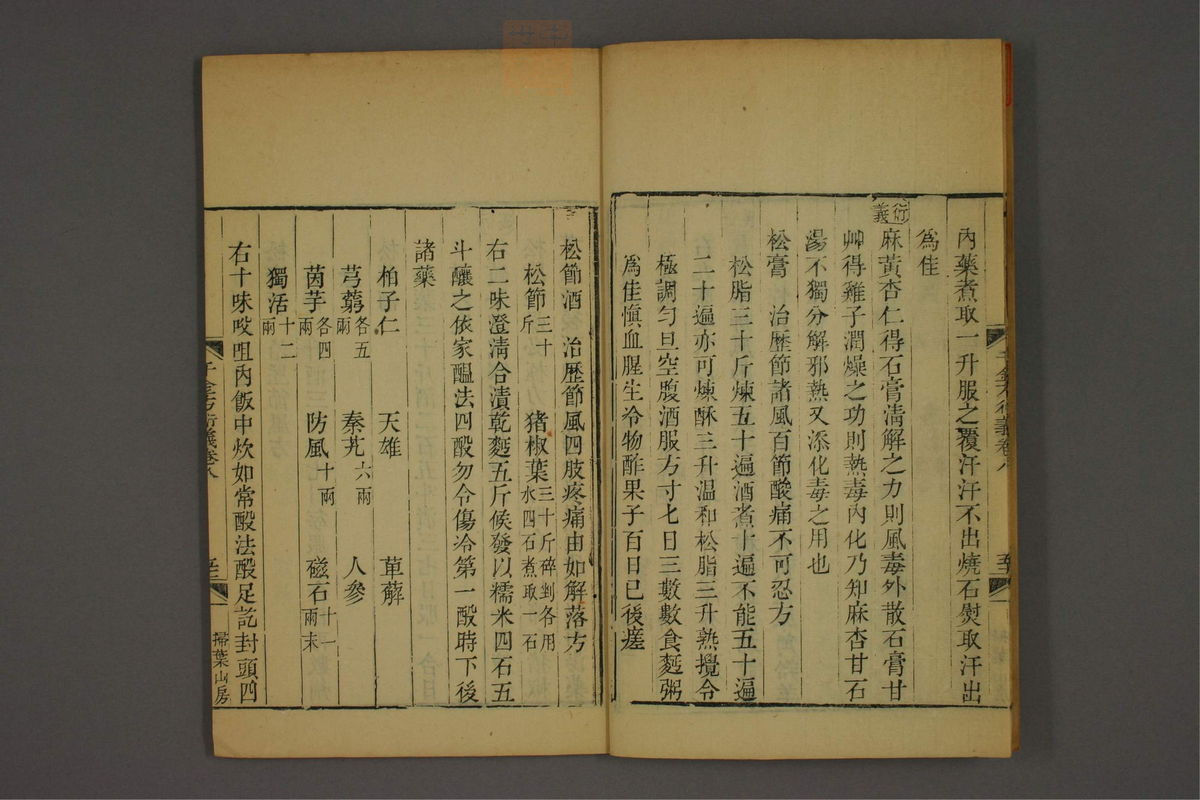 內藥煮取一升服之覆汗汗不出燒石熨取汗出
爲佳
衍義
麻黃杏仁得石膏清解之力則風毒外散石膏甘
艸得雞子潤燥之功則熱毒內化乃知麻杏甘石
湯不獨分解邪熱又添化毒之用也
松膏 治歷節諸風百節酸痛不可忍方
松脂三十斤煉五十遍酒煮十遍不能五十遍
二十遍亦可煉酥三升溫和松脂三升熟攪令
極調勻旦空腹酒服方寸七日三數數食麪粥
爲佳愼血腥生冷物酢果子百日已後瘥
千金方衍義卷八
松節酒 治歷節風四肢疼痛由如解落方
松節三十斤 猪椒葉三十斤碎剉各用水四石煮取一石
右二味澄淸合漬乾麪五斤候發以糯米四石五
斗釀之依家醞法四酘勿令傷冷第一酘時下後
諸藥
柏子仁 天雄 萆薢
芎藭各五兩 秦艽六兩 人參
茵芋各四兩 防風十兩 磁石十一兩末
獨活十二兩
右十味㕮咀內飯中炊如常酘法酘足訖封頭四
千金方衍義卷八
掃葉山房